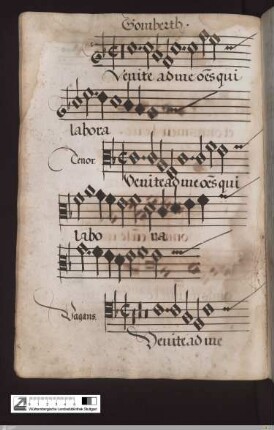 Gomberth.
Venite ad me oēs qui
labora
Tenor.
Venite ad me oēs qui
labo ra
Vagans.
Venite ad me
Württembergische Landesbibliothek Stuttgart